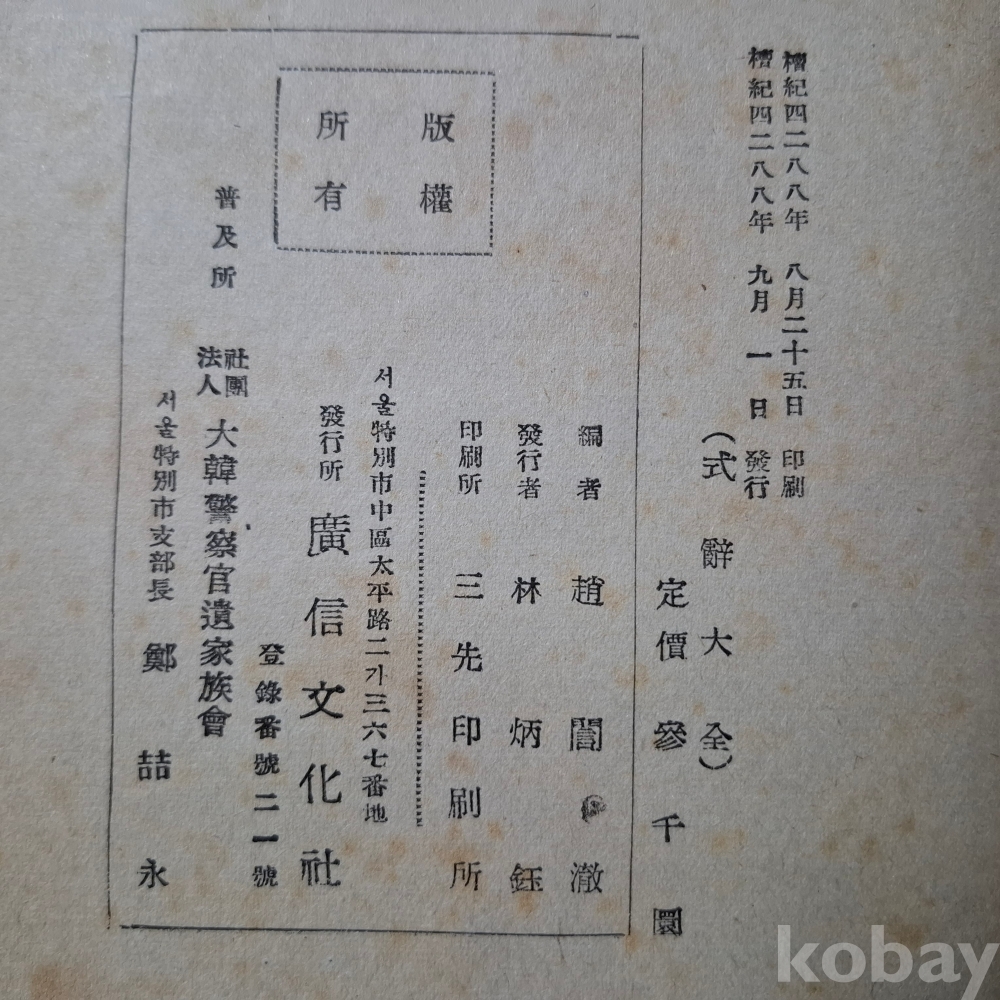 檀紀四二八八年 八月二十五日 印刷
檀紀四二八八年 九月 一日 發行
(式辭大全)
定價參千圜
編者 趙誾澈
發行者 林炳鈺
印刷所 三先印刷所
서울特別市中區太平路二가三六七番地
發行所 廣信文化社
登錄番號二一號
版權
所有
普及所
社團
法人
大韓警察官遺家族會
서울特別市支部長 鄭喆永
kobay